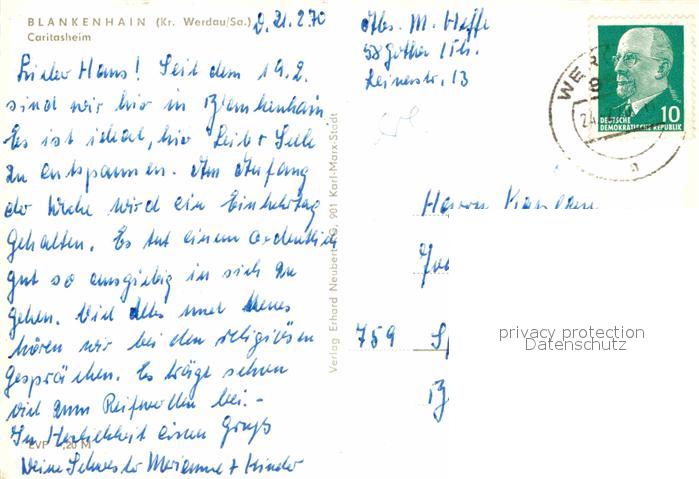 BLANKENHAIN (Kr. Werdau/Sa.)
Caritasheim
d. 21.2.70
Lieber Hans! Seit dem 19.2.
sind wir hier in Blankenhain.
Es ist ideal, hier Leib + Seele
zu entspannen. Am Anfang
der Woche wird ein Einkehrtag
gehalten. Es tut einem ordentlich
gut so ausgiebig in sich zu
gehen. Viel Altes und Neues
hören wir bei den religiösen
Gesprächen. Es trägt schon
viel zum Reifwerden bei. -
In Herzlichkeit einen Gruß
Deine Schwester Marianne + Kinder
EVP -,20 M
Verlag Erhard Neubert KG, 901 Karl-Marx-Stadt
Abs. M.
58 Gotha / Th.
Leinerstr. 13
WER
24.
10
DEUTSCHE
DEMOKRATISCHE REPUBLIK
a
Herrn
759 Sp
privacy protection
Datenschutz